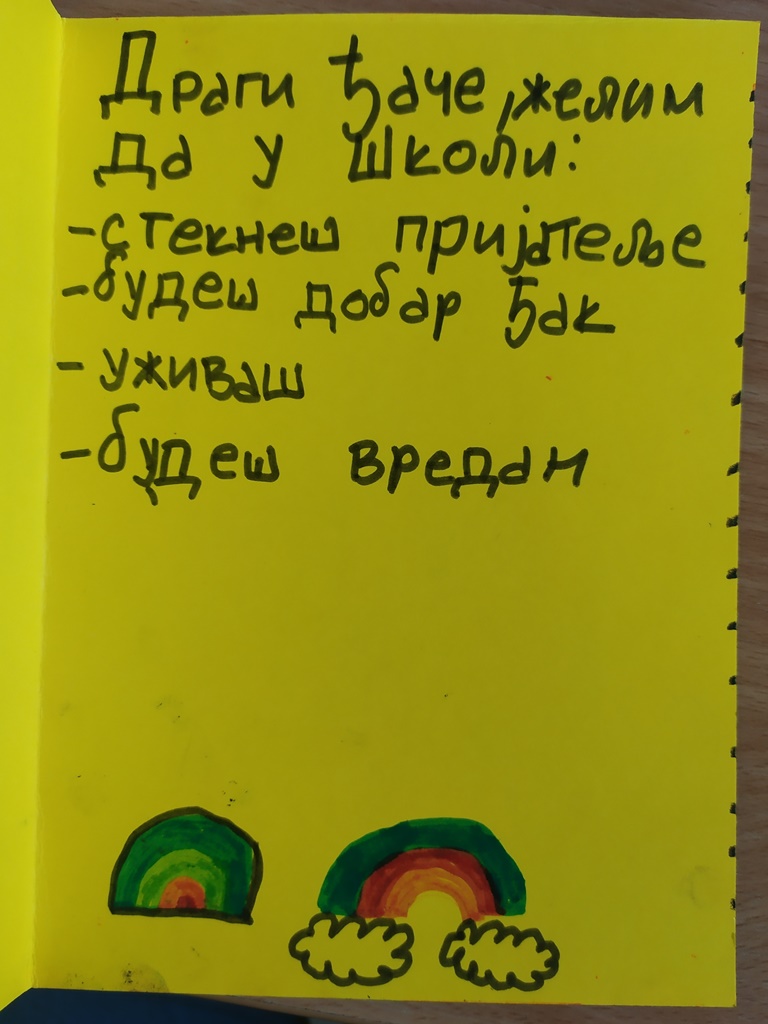 Драги ђаче, желим
да у школи:
-стекнеш пријатеље
-будеш добар ђак
- уживаш
-будеш вредан